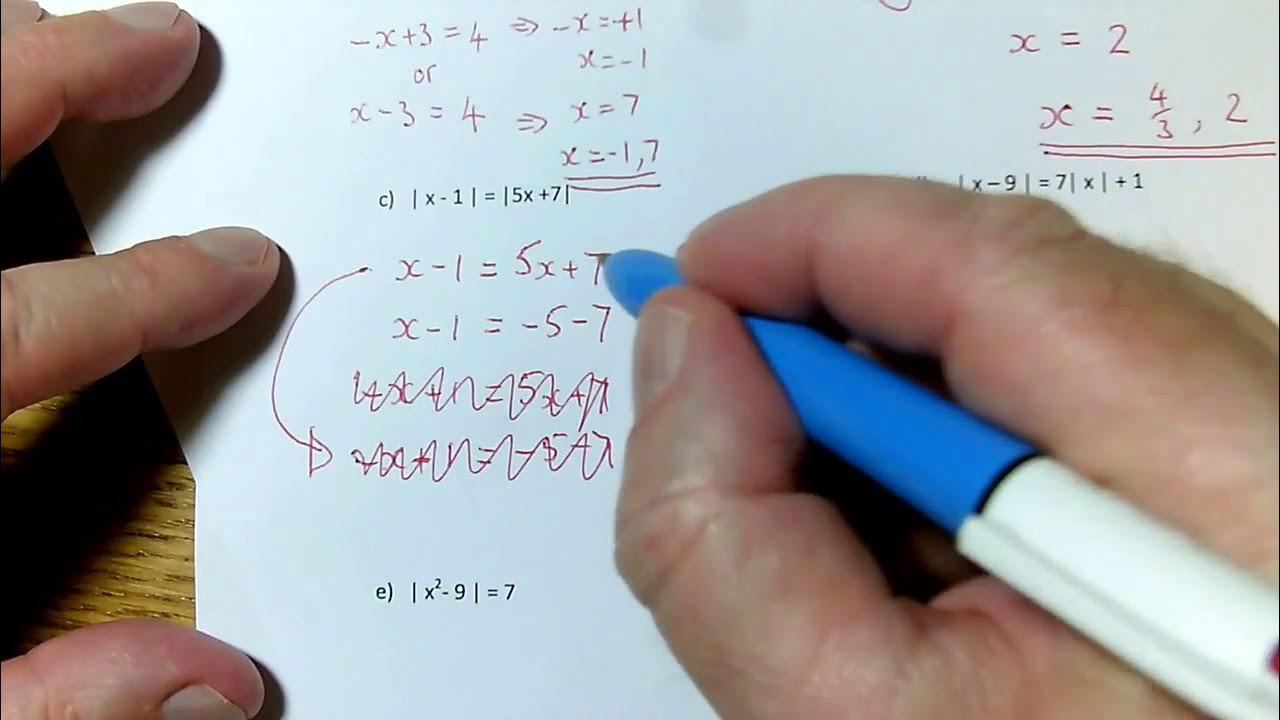 -x+3 = 4 ⇒ -x = +1
or
x = -1
x - 3 = 4 ⇒ x = 7
x = -1, 7
c) | x - 1 | = |5x +7|
x - 1 = 5x + 7
x - 1 = -5 - 7
e) | x²- 9 | = 7
x = 2
x = 4/3 , 2
| x – 9 | = 7| x | + 1